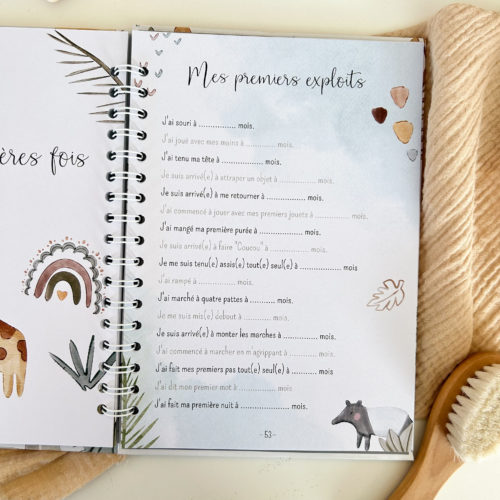 ères fois
Mes premiers exploits
J'ai souri à ................ mois.
J'ai joué avec mes mains à ............. mois.
J'ai tenu ma tête à ............. mois.
Je suis arrivé(e) à attraper un objet à .......... mois.
Je suis arrivé(e) à me retourner à ................ mois.
J'ai commencé à jouer avec mes premiers jouets à ............... mois.
J'ai mangé ma première purée à ............ mois.
Je suis arrivé(e) à faire "Coucou" à ............ mois.
Je me suis tenu(e) assis(e) tout(e) seul(e) à ................ mois
J'ai rampé à ............... mois.
J'ai marché à quatre pattes à ........... mois.
Je me suis mis(e) debout à ............ mois.
Je suis arrivé(e) à monter les marches à ............. mois.
J'ai commencé à marcher en m'agrippant à ......... mois.
J'ai fait mes premiers pas tout(e) seul(e) à ........... mois
J'ai dit mon premier mot à ............ mois
J'ai fait ma première nuit à ............... mois.
- 53 -